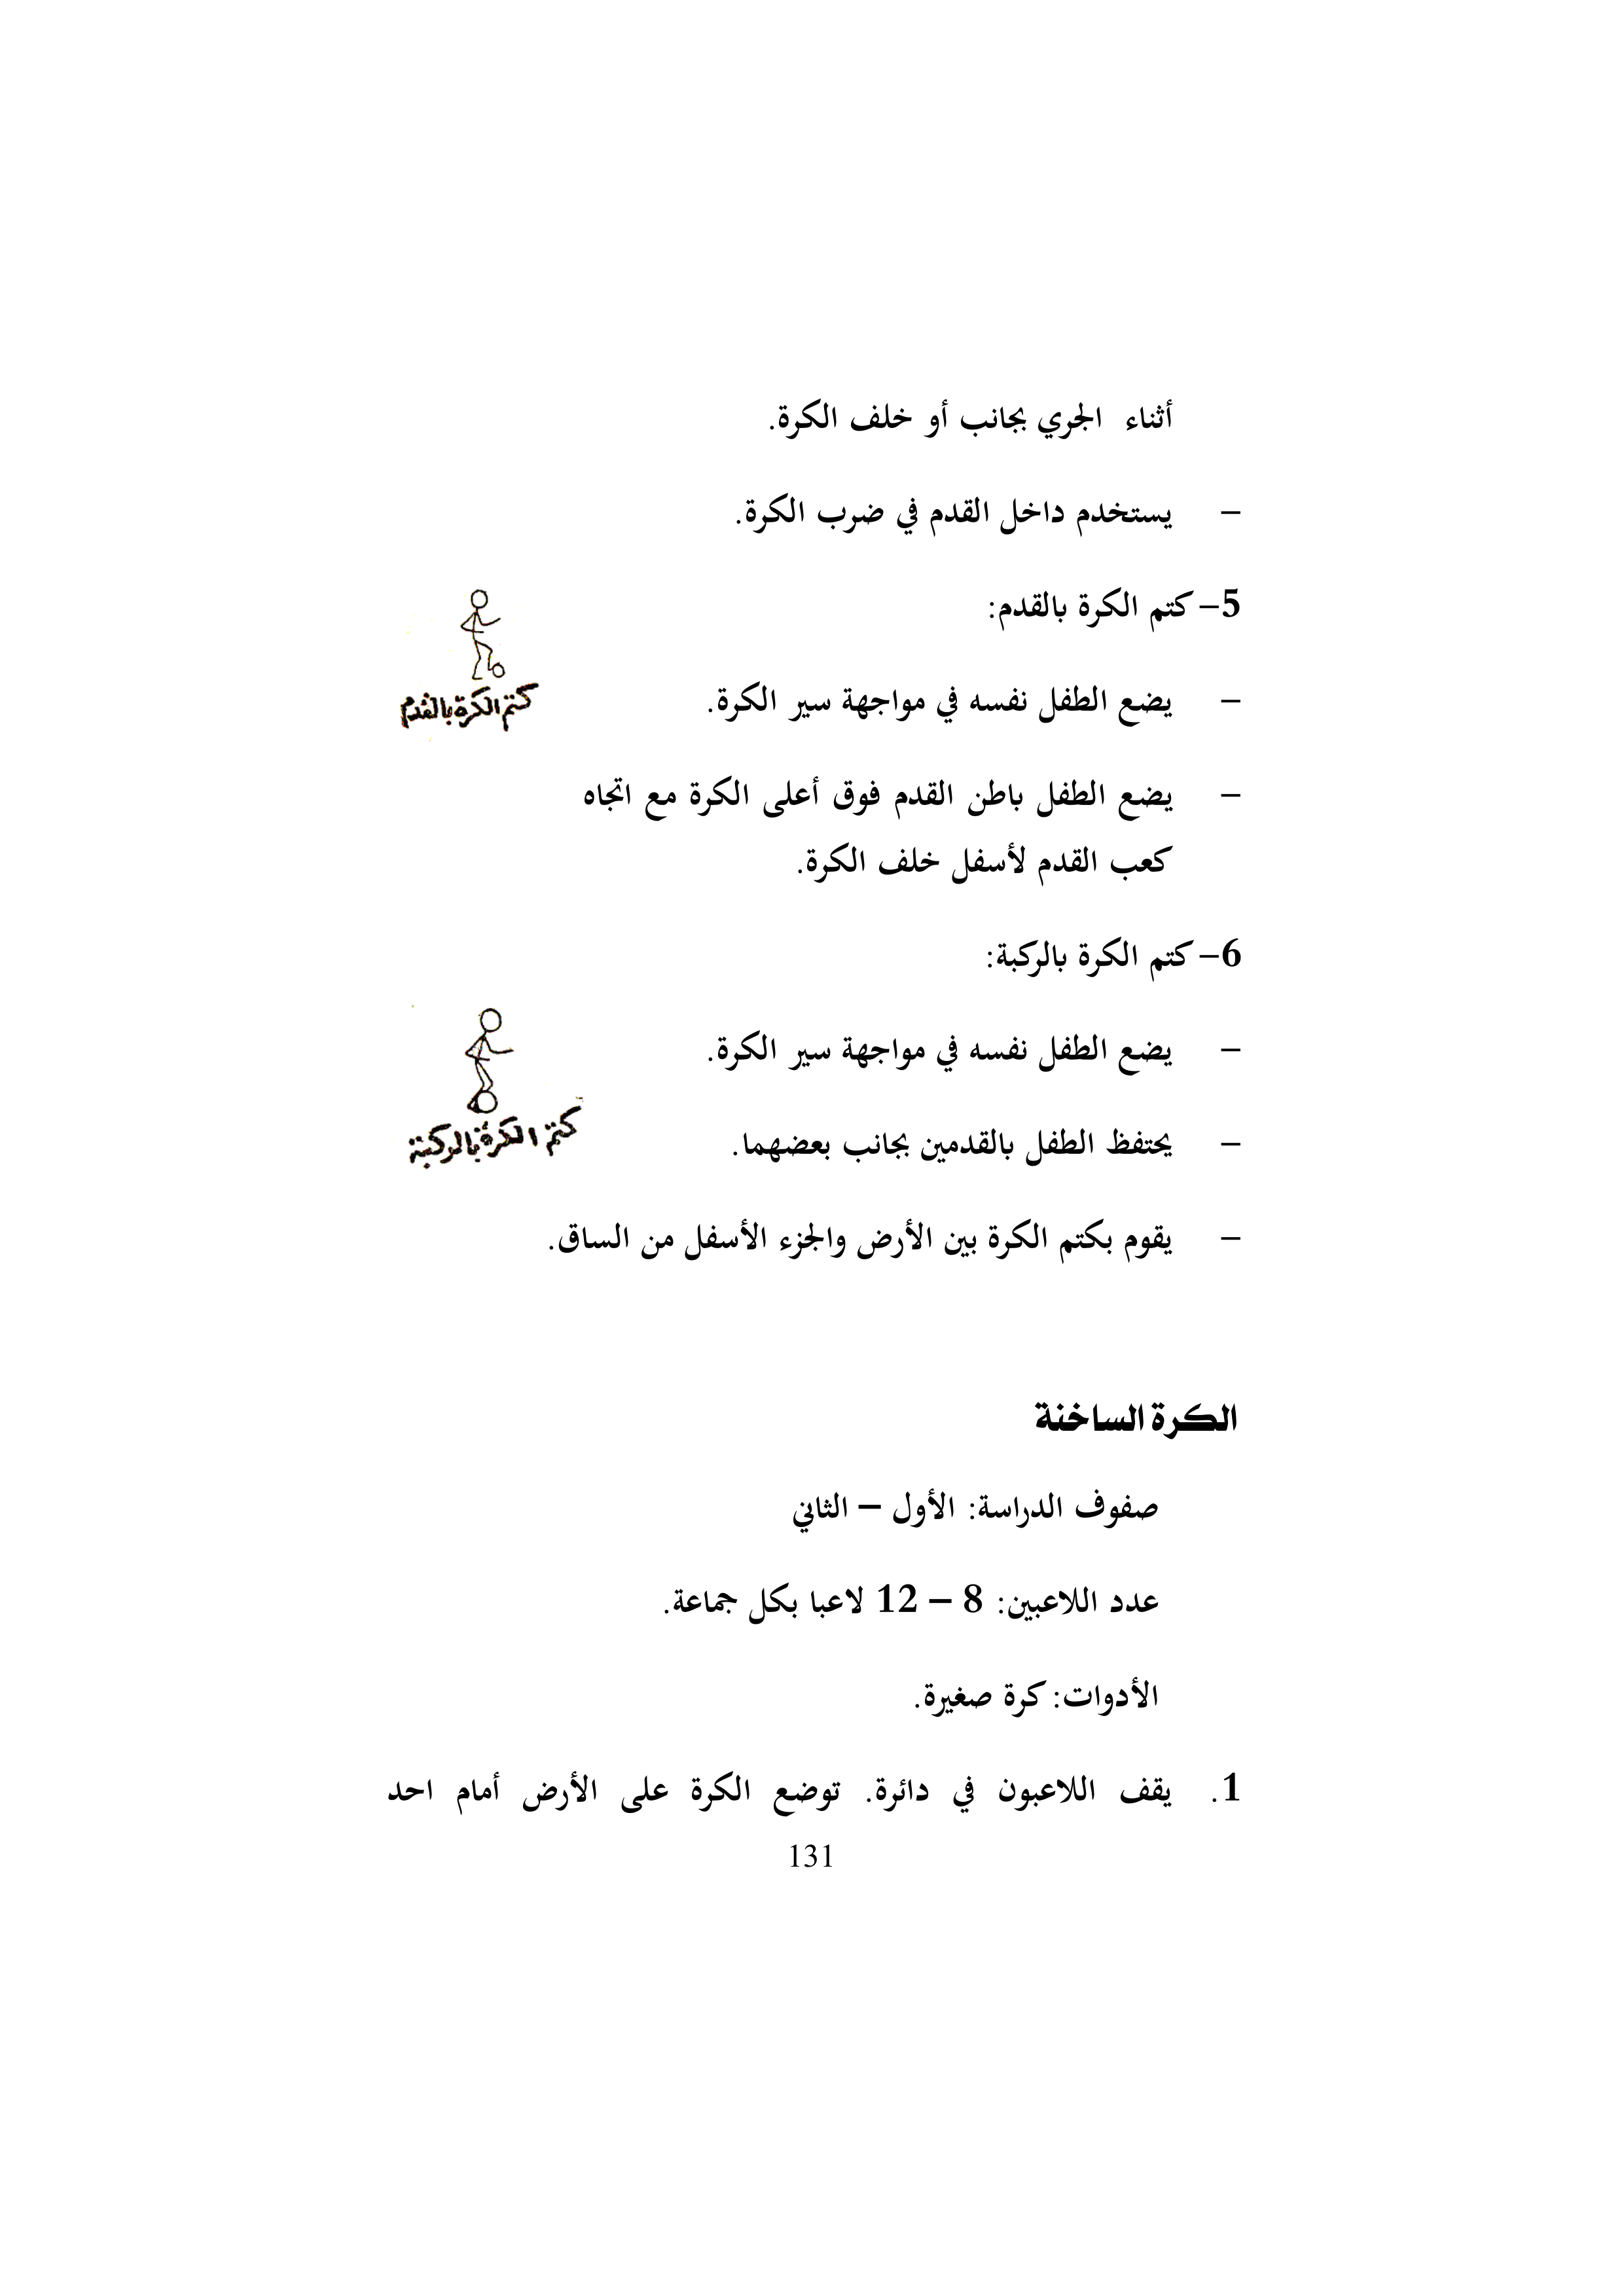 أثناء الجري بجانب أو خلف الكرة.
– يستخدم داخل القدم في ضرب الكرة.
5– كتم الكرة بالقدم:
كتم الكرة بالقدم
– يضع الطفل نفسه في مواجهة سير الكرة.
– يضع الطفل باطن القدم فوق أعلى الكرة مع اتجاه
كعب القدم لأسفل خلف الكرة.
6– كتم الكرة بالركبة:
– يضع الطفل نفسه في مواجهة سير الكرة.
– يحتفظ الطفل بالقدمين بجانب بعضهما.
كتم الكرة بالركبة
– يقوم بكتم الكرة بين الأرض والجزء الأسفل من الساق.
الكرة الساخنة
صفوف الدراسة: الأول – الثاني
عدد اللاعبين: 8 – 12 لاعبا بكل جماعة.
الأدوات: كرة صغيرة.
1. يقف اللاعبون في دائرة. توضع الكرة على الأرض أمام احد
131